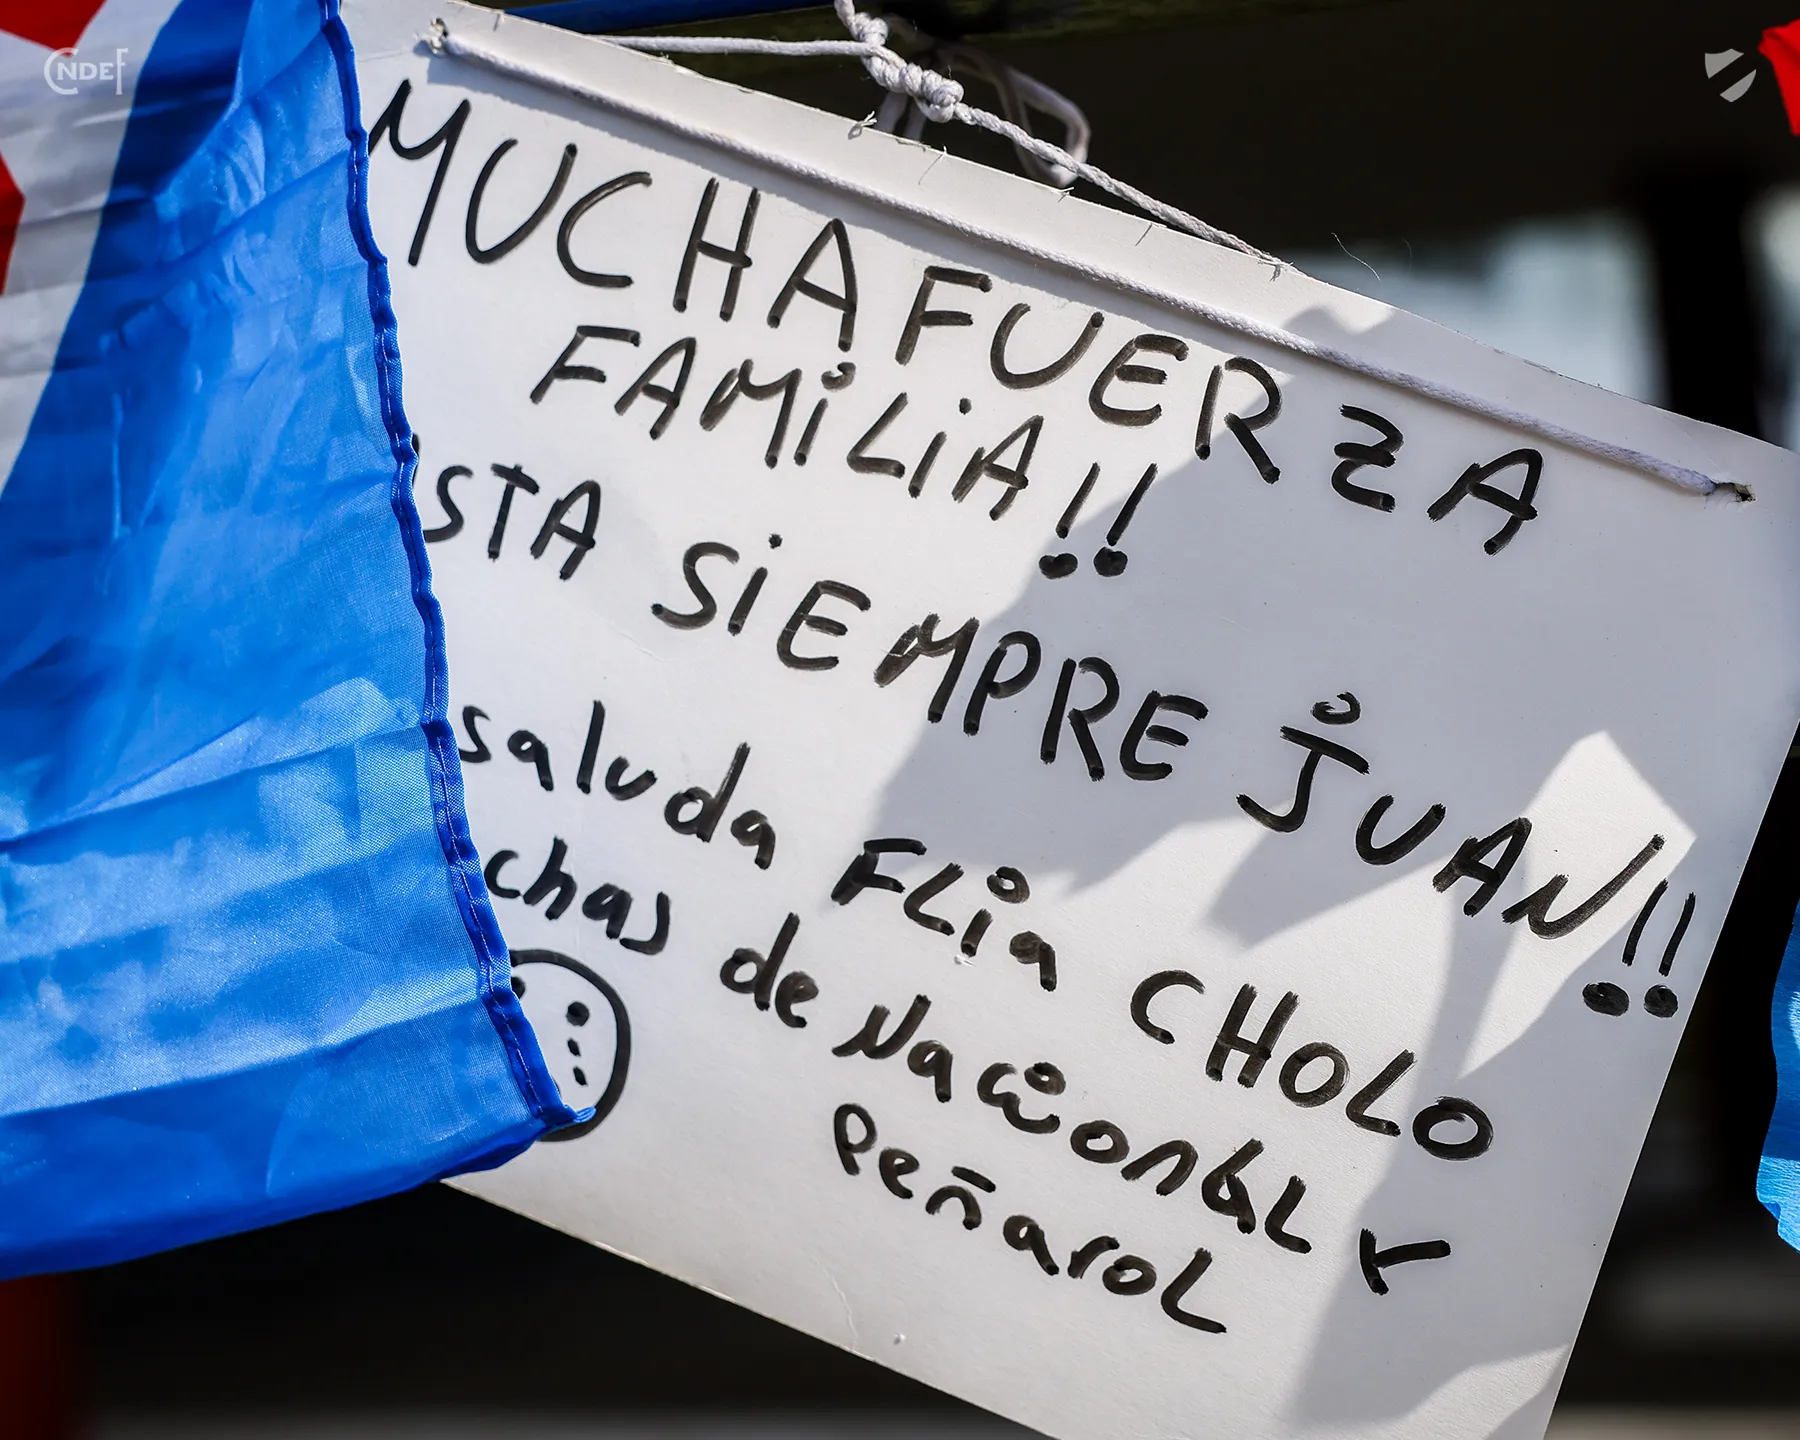 CNDEF
MUCHA FUERZA
FAMiLiA!!
STA SiEMPRE JUAN!!
saluda FLia CHOLO
chas de Nacional y
Peñarol